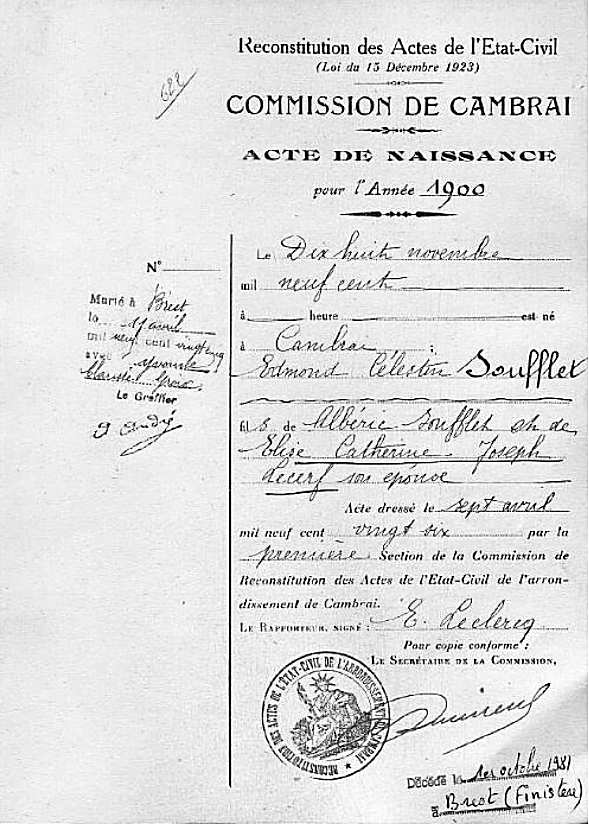 Reconstitution des Actes de l'Etat-Civil
(Loi du 15 Décembre 1923)
622
COMMISSION DE CAMBRAI
ACTE DE NAISSANCE
pour l'Année 1900
Le Dix huit novembre
mil neuf cent
à heure est né
à Cambrai ;
Edmond Célestin Soufflet
fils de Albéric Soufflet et de
Elise Catherine Joseph
Lecerf son épouse
Acte dressé le sept avril
mil neuf cent vingt six par la
première Section de la Commission de
Reconstitution des Actes de l'Etat-Civil de l'arron-
dissement de Cambrai.
LE RAPPORTEUR, SIGNÉ : E. Leclercq
Pour copie conforme :
LE SECRÉTAIRE DE LA COMMISSION,
N°
Marié à Brest
le avril
mil neuf cent vingt cinq
avec Yvonne
Le Greffier
André
RECONSTITUTION DES ACTES DE L'ÉTAT-CIVIL DE L'ARRONDISSEMENT DE CAMBRAI
Décédé le 1er octobre 1981
à Brest (Finistère)